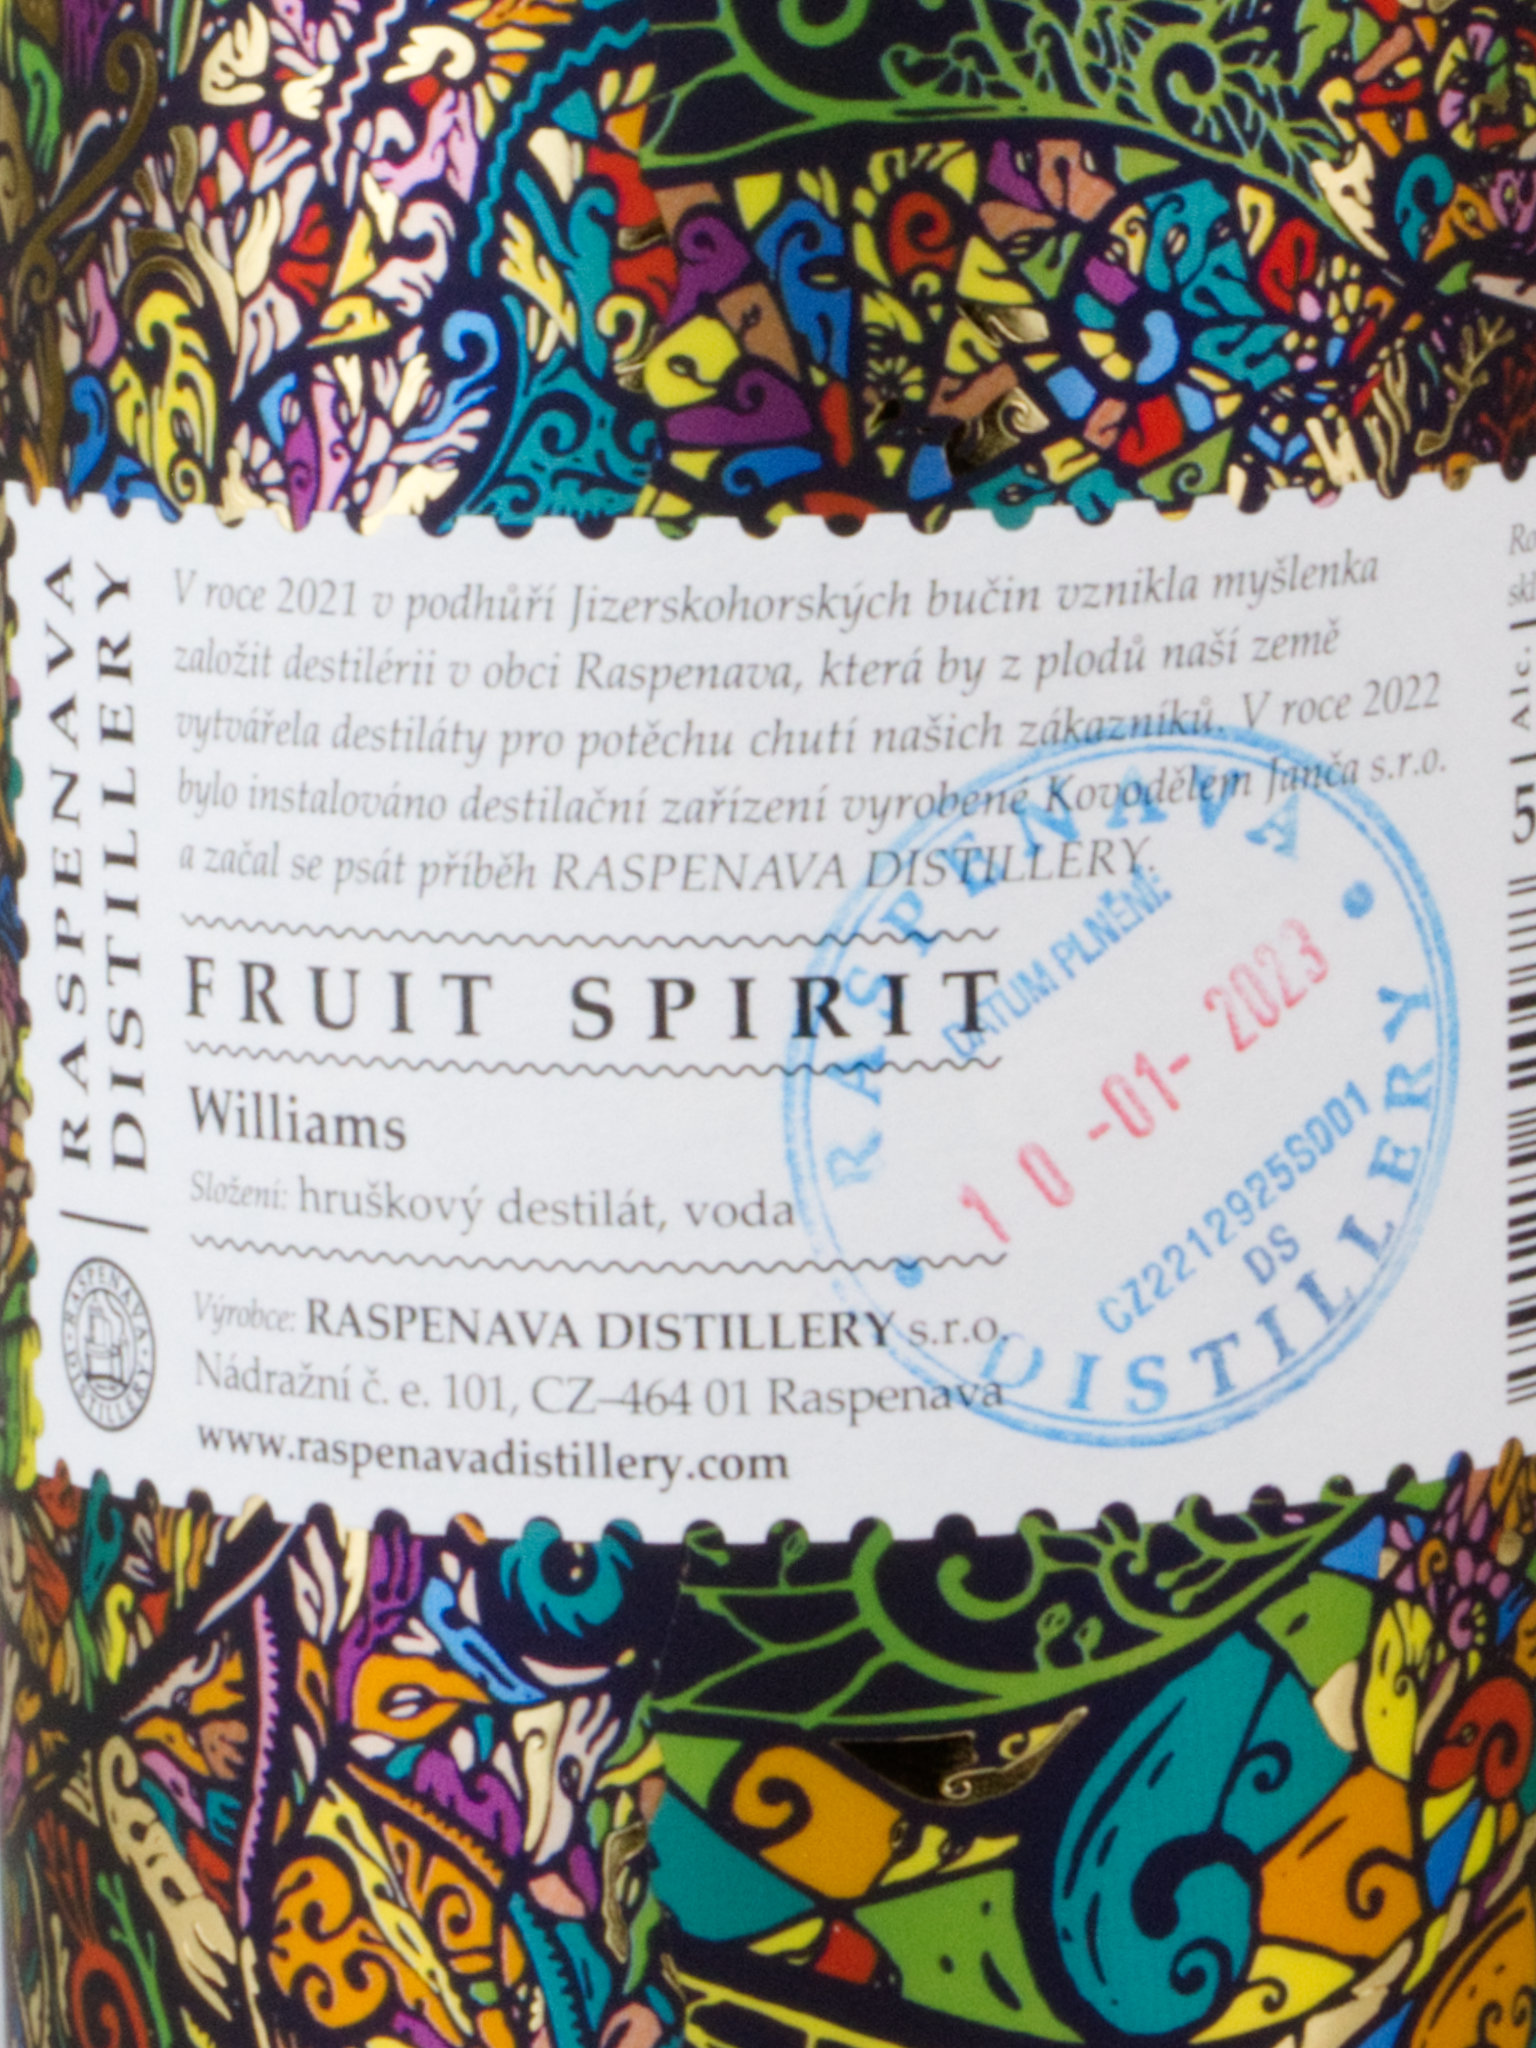 RASPENAVA
DISTILLERY
RASPENAVA DISTILLERY
V roce 2021 v podhůří Jizerskohorských bučin vznikla myšlenka
založit destilérii v obci Raspenava, která by z plodů naší země
vytvářela destiláty pro potěchu chutí našich zákazníků. V roce 2022
bylo instalováno destilační zařízení vyrobené Kovodělem Janča s.r.o.
a začal se psát příběh RASPENAVA DISTILLERY.
FRUIT SPIRIT
Williams
Složení: hruškový destilát, voda
Výrobce: RASPENAVA DISTILLERY s.r.o.
Nádražní č. e. 101, CZ–464 01 Raspenava
www.raspenavadistillery.com
RASPENAVA
DATUM PLNĚNÍ:
10-01-2023
CZ2212925SD01
DS
DISTILLERY
Alc.